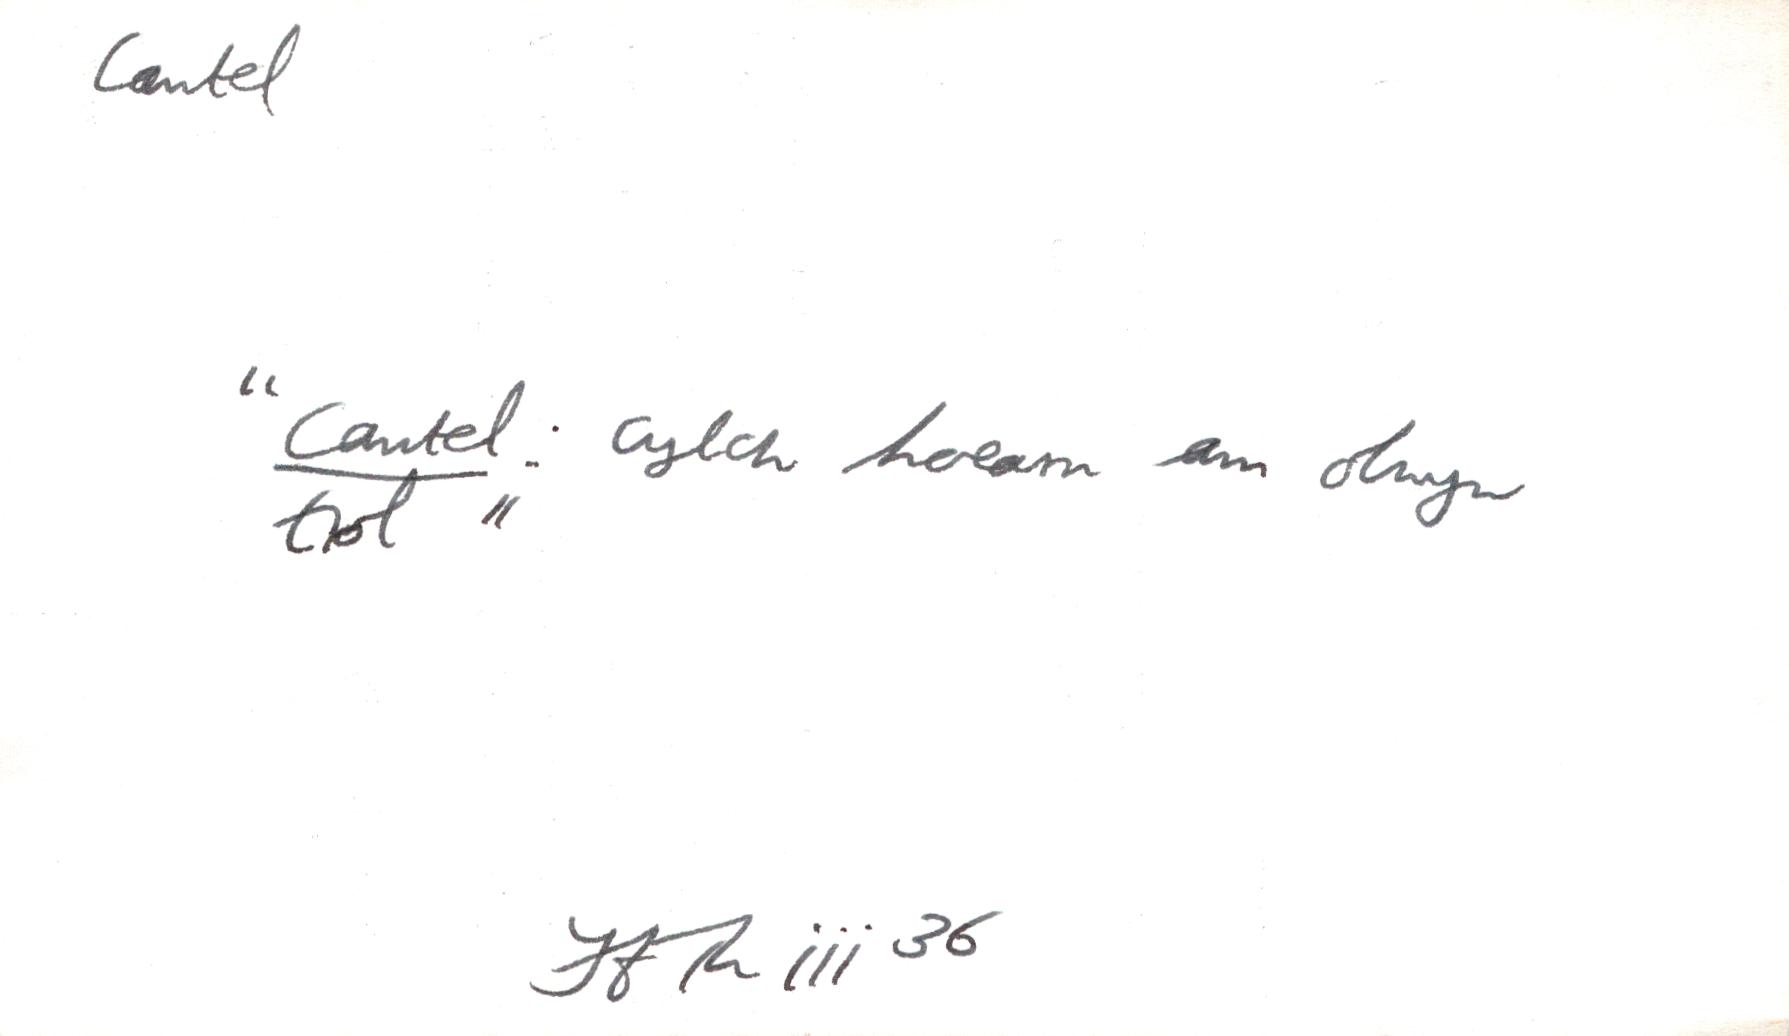 Cantel
"Cantel: cylch hoearn am olwyn
trol"
iii 36